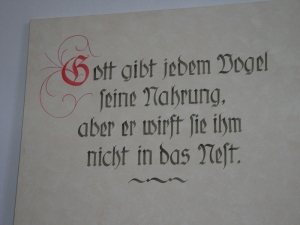 Gott gibt jedem Vogel
ſeine Nahrung,
aber er wirft ſie ihm
nicht in das Neſt.